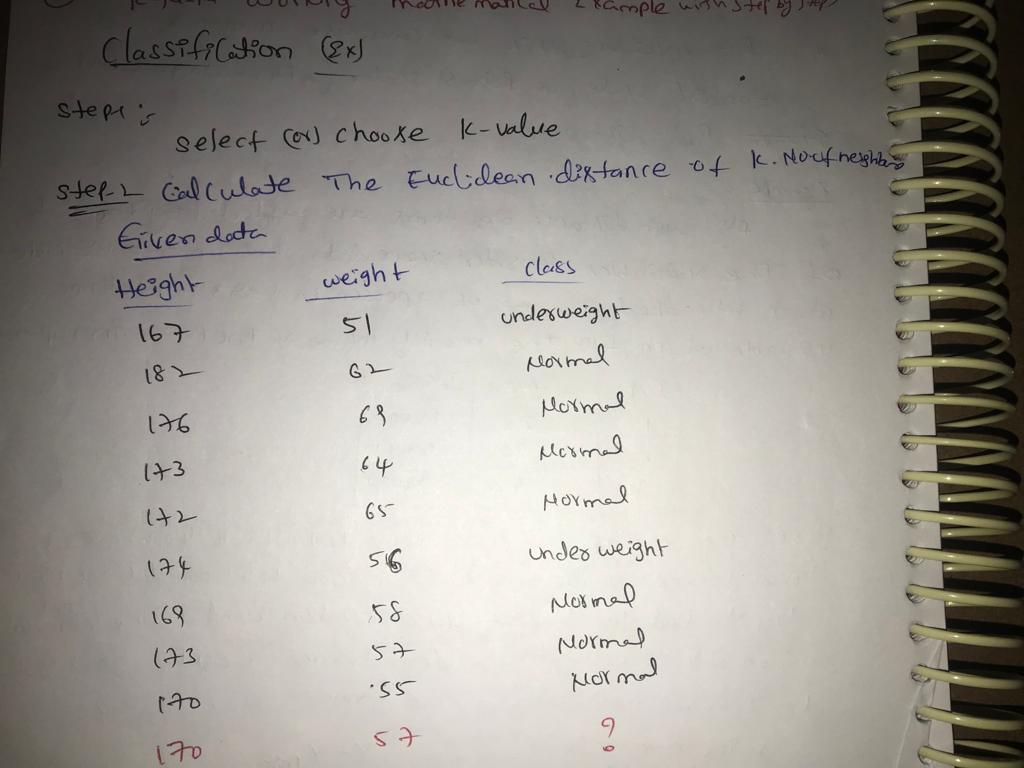 working mathematical Example with step by step
Classification (Ex)
Step1:
select (or) choose K-value
Step-2 Calculate The Euclidean distance of K. No of neighbors
Given data
Height weight class
167 51 underweight
182 62 Normal
176 69 Normal
173 64 Normal
172 65 Normal
174 56 under weight
169 58 Normal
173 57 Normal
170 55 Normal
170 57 ?